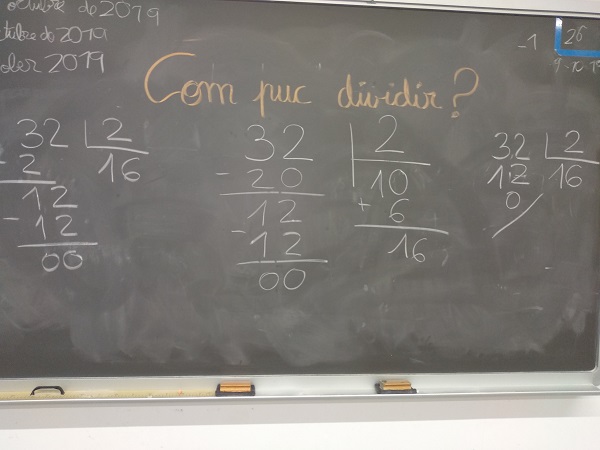 octubre de 2019
octubre de 2019
october 2019
-1
26
9-10-19
Com puc dividir?
32 2
- 2 16
12
- 12
00
32 2
- 20 10
12 + 6
- 12 16
00
32 2
12 16
0